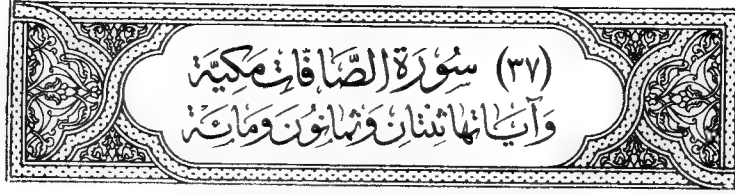 (٣٧) سُورَة الصَّافَّاتِ مَكِيَّة
وَآيَاتهَا ثِنتَانِ وَثَمَانُونَ وَمِائَة